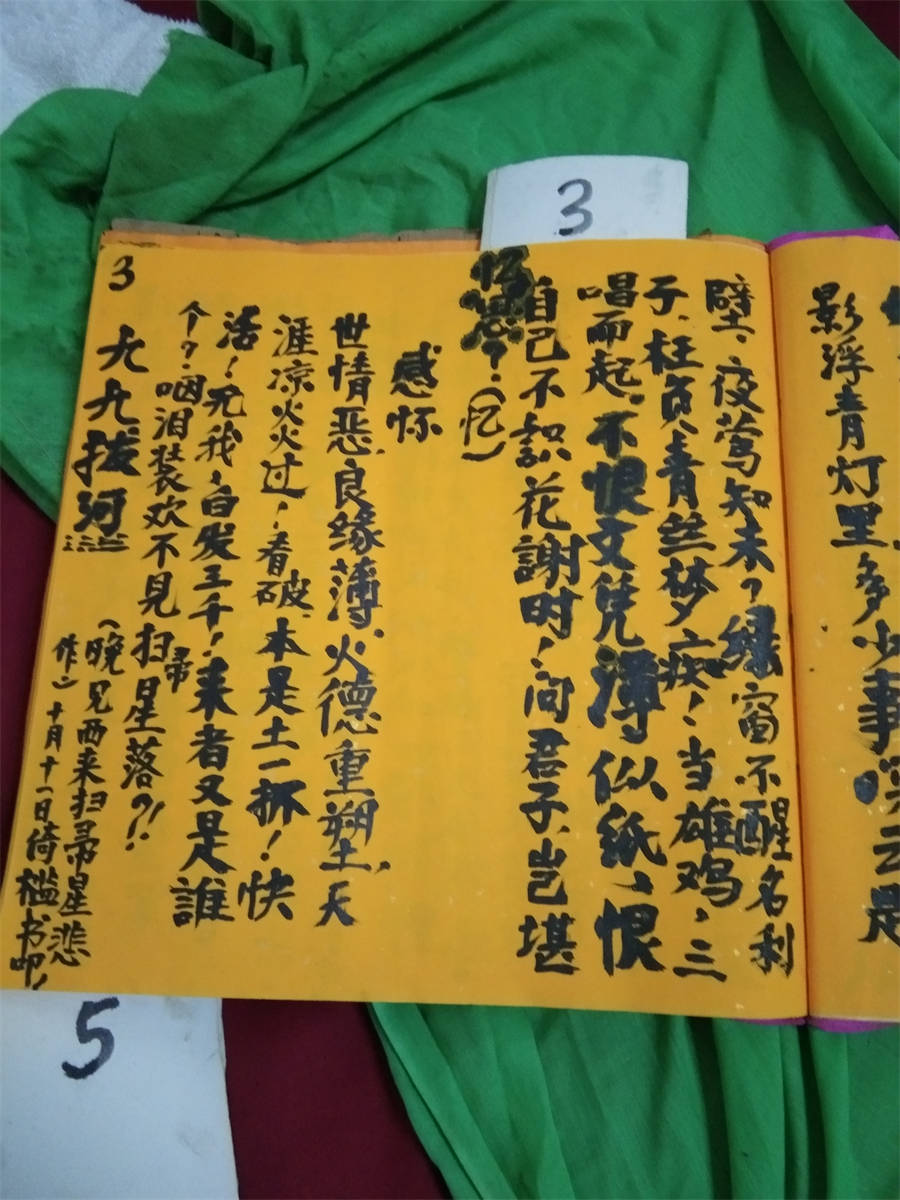 3
影浮青灯里多少事
壁、夜莺知未？绿窗不醒名利
子、枉负青丝梦！当雄鸡、三
唱而起、不恨文凭薄似纸、恨
自己不、花謝时！问君子、岂堪
忆？(忆)
感怀
世情恶、良缘薄、火德重塑，天
涯凉炎过！看破、本是土一抔！快
活！兄我，白发三千！来者又是誰
个？咽泪装欢不见扫帚星落？!
(晚见西来扫帚星悲
作）十月十一日倚槛书
九九拨河
3
5